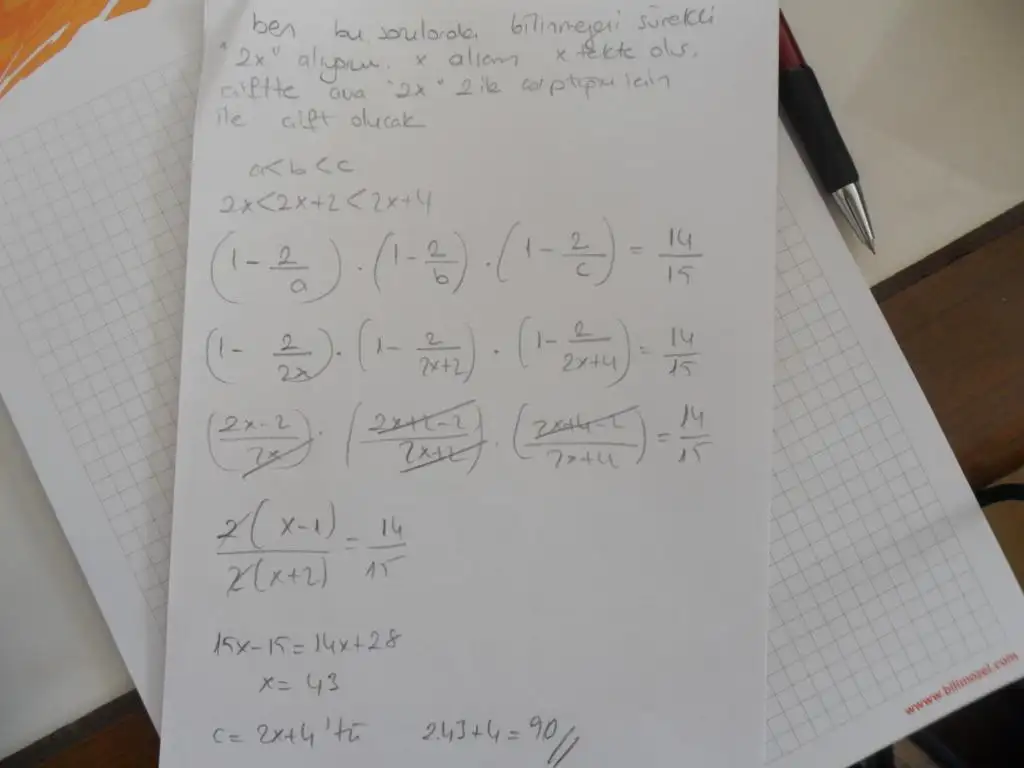 ben bu sorularda bilinmeyeni sürekli
"2x" alıyorum. x alsam x tekte olur,
çiftte ama "2x" 2 ile çarptığım için
ile çift olucak
a<b<c
2x<2x+2<2x+4
(1 - 2/a) . (1 - 2/b) . (1 - 2/c) = 14/15
(1 - 2/2x) . (1 - 2/2x+2) . (1 - 2/2x+4) = 14/15
(2x-2/2x) . (2x+2-2/2x+2) . (2x+4-2/2x+4) = 14/15
2(x-1)/2(x+2) = 14/15
15x-15=14x+28
x= 43
c= 2x+4'tü 2.43+4=90//
www.bilimozel.com